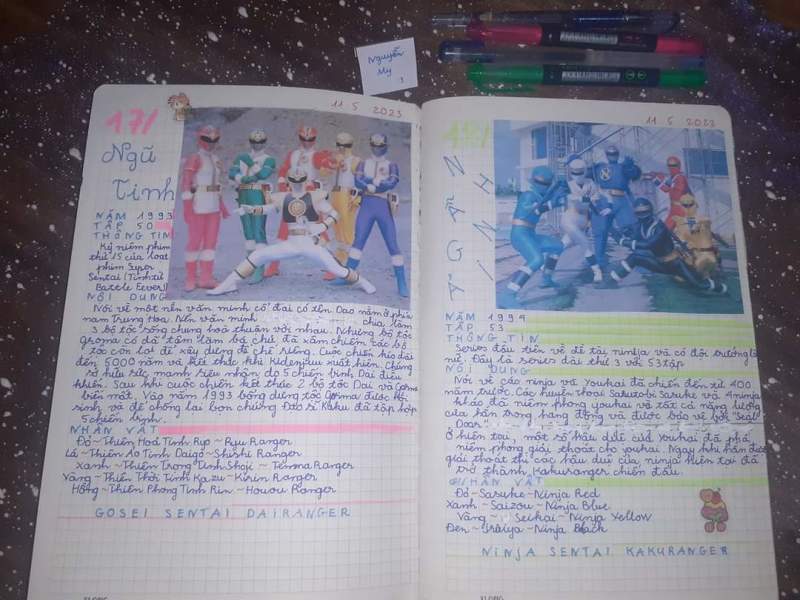 Nguyễn
My
11.5 2023
17/
Ngũ
Tinh
NĂM 1993
TẬP 50
THÔNG TIN
Kỷ niệm phim
thứ 15 của loạt
phim Super
Sentai (Tính từ
Battle Fever)
NỘI DUNG
Nói về một nền văn minh cổ đại có tên Dao nằm ở phía
nam Trung Hoa. Nền văn minh chia làm
3 bộ tộc sống chung hoà thuận với nhau. Nhưng bộ tộc
Gorma có dã tâm làm bá chủ đã xâm chiếm các bộ
tộc còn lại để xây dựng đế chế riêng. Cuộc chiến kéo dài
đến 5000 năm và kết thúc khi Kidenjuu xuất hiện. Chúng
sở hữu sức mạnh siêu nhận do 5 chiến binh Dai điều
khiển. Sau khi cuộc chiến kết thúc 2 bộ tộc Dai và Gorma
biến mất. Vào năm 1993 bỗng dưng tộc Gorma được hồi
sinh và để chống lại bọn chúng Đạo sĩ Kaku đã tập hợp
5 chiến binh.
NHÂN VẬT
Đỏ ~ Thiên Hoả Tinh Ryo ~ Ryu Ranger
Lá ~ Thiên Ảo Tinh Daigo ~ Shishi Ranger
Xanh ~ Thiên Trọng Tinh Shoji ~ Tenma Ranger
Vàng ~ Thiên Thời Tinh Kazu ~ Kirin Ranger
Hồng ~ Thiên Phong Tinh Rin ~ Houou Ranger
GOSEI SENTAI DAIRANGER
11.5 2023
18/
NĂM 1994
TẬP 53
THÔNG TIN
Series đầu tiên về đề tài ninja và có đội trưởng là
nữ. Đây là series dài thứ 3 với 53 tập
NỘI DUNG
Nói về các ninja và Youkai đã chiến đến từ 400
năm trước. Các huyền thoại Sarutobi Sasuke và 4 ninja
khác đã niêm phong youkai và tất cả năng lượng
của hắn trong hang động và được bảo vệ bởi "Seal
Door".
Ở hiện tại, một số hậu duệ của youkai đã phá
niêm phong giải thoát cho youkai. Ngay khi hắn được
giải thoát thì các hậu duệ của ninja hiện tại đã
trở thành Kakuranger chiến đấu.
NHÂN VẬT
Đỏ ~ Sasuke ~ Ninja Red
Xanh ~ Saizou ~ Ninja Blue
Vàng ~ Seikai ~ Ninja Yellow
Đen ~ Jiraiya ~ Ninja Black
NINJA SENTAI KAKURANGER